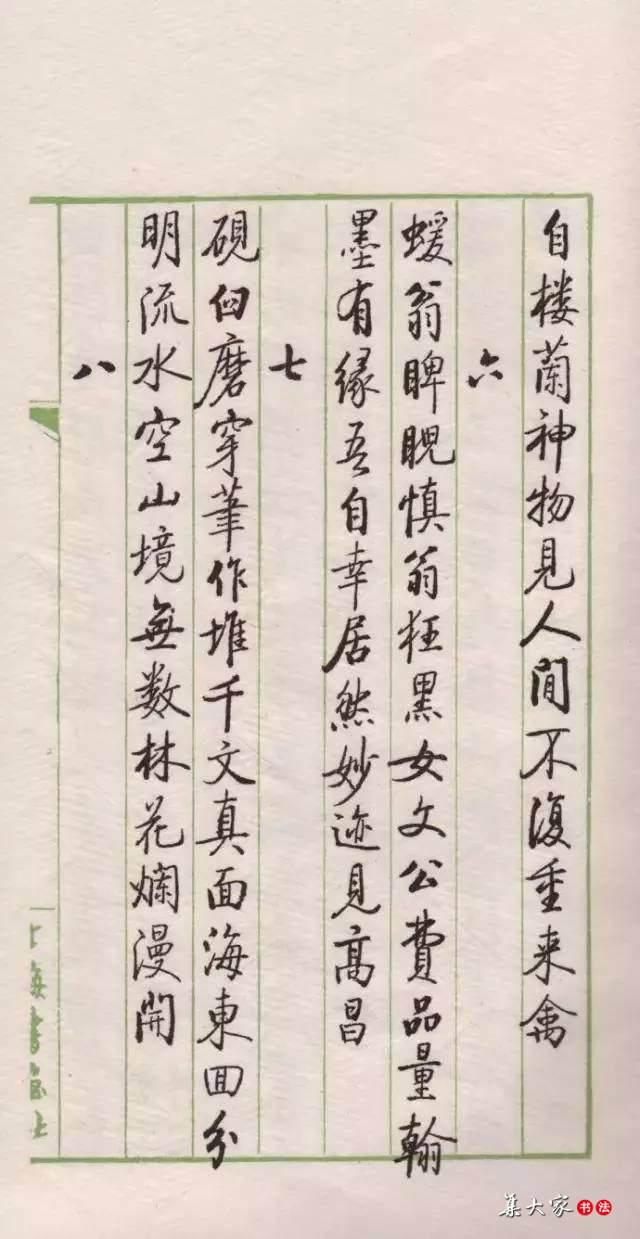 自楼蘭神物見人間不復重来禽
六
蝯翁睥睨慎翁狂黑女文公費品量翰
墨有缘吾自幸居然妙迹見高昌
七
硯臼磨穿筆作堆千文真面海東回分
明流水空山境無数林花爛漫開
八
上海書畫社
集大家书法